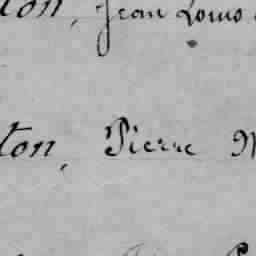 ton, Jean Louis
ton, Pierre